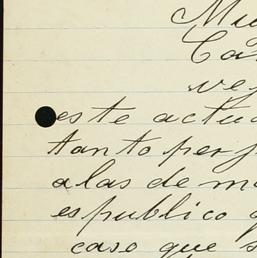 Mu
Ca
ve
este actua
tanto perj
a las de m
es publico q
caso que s